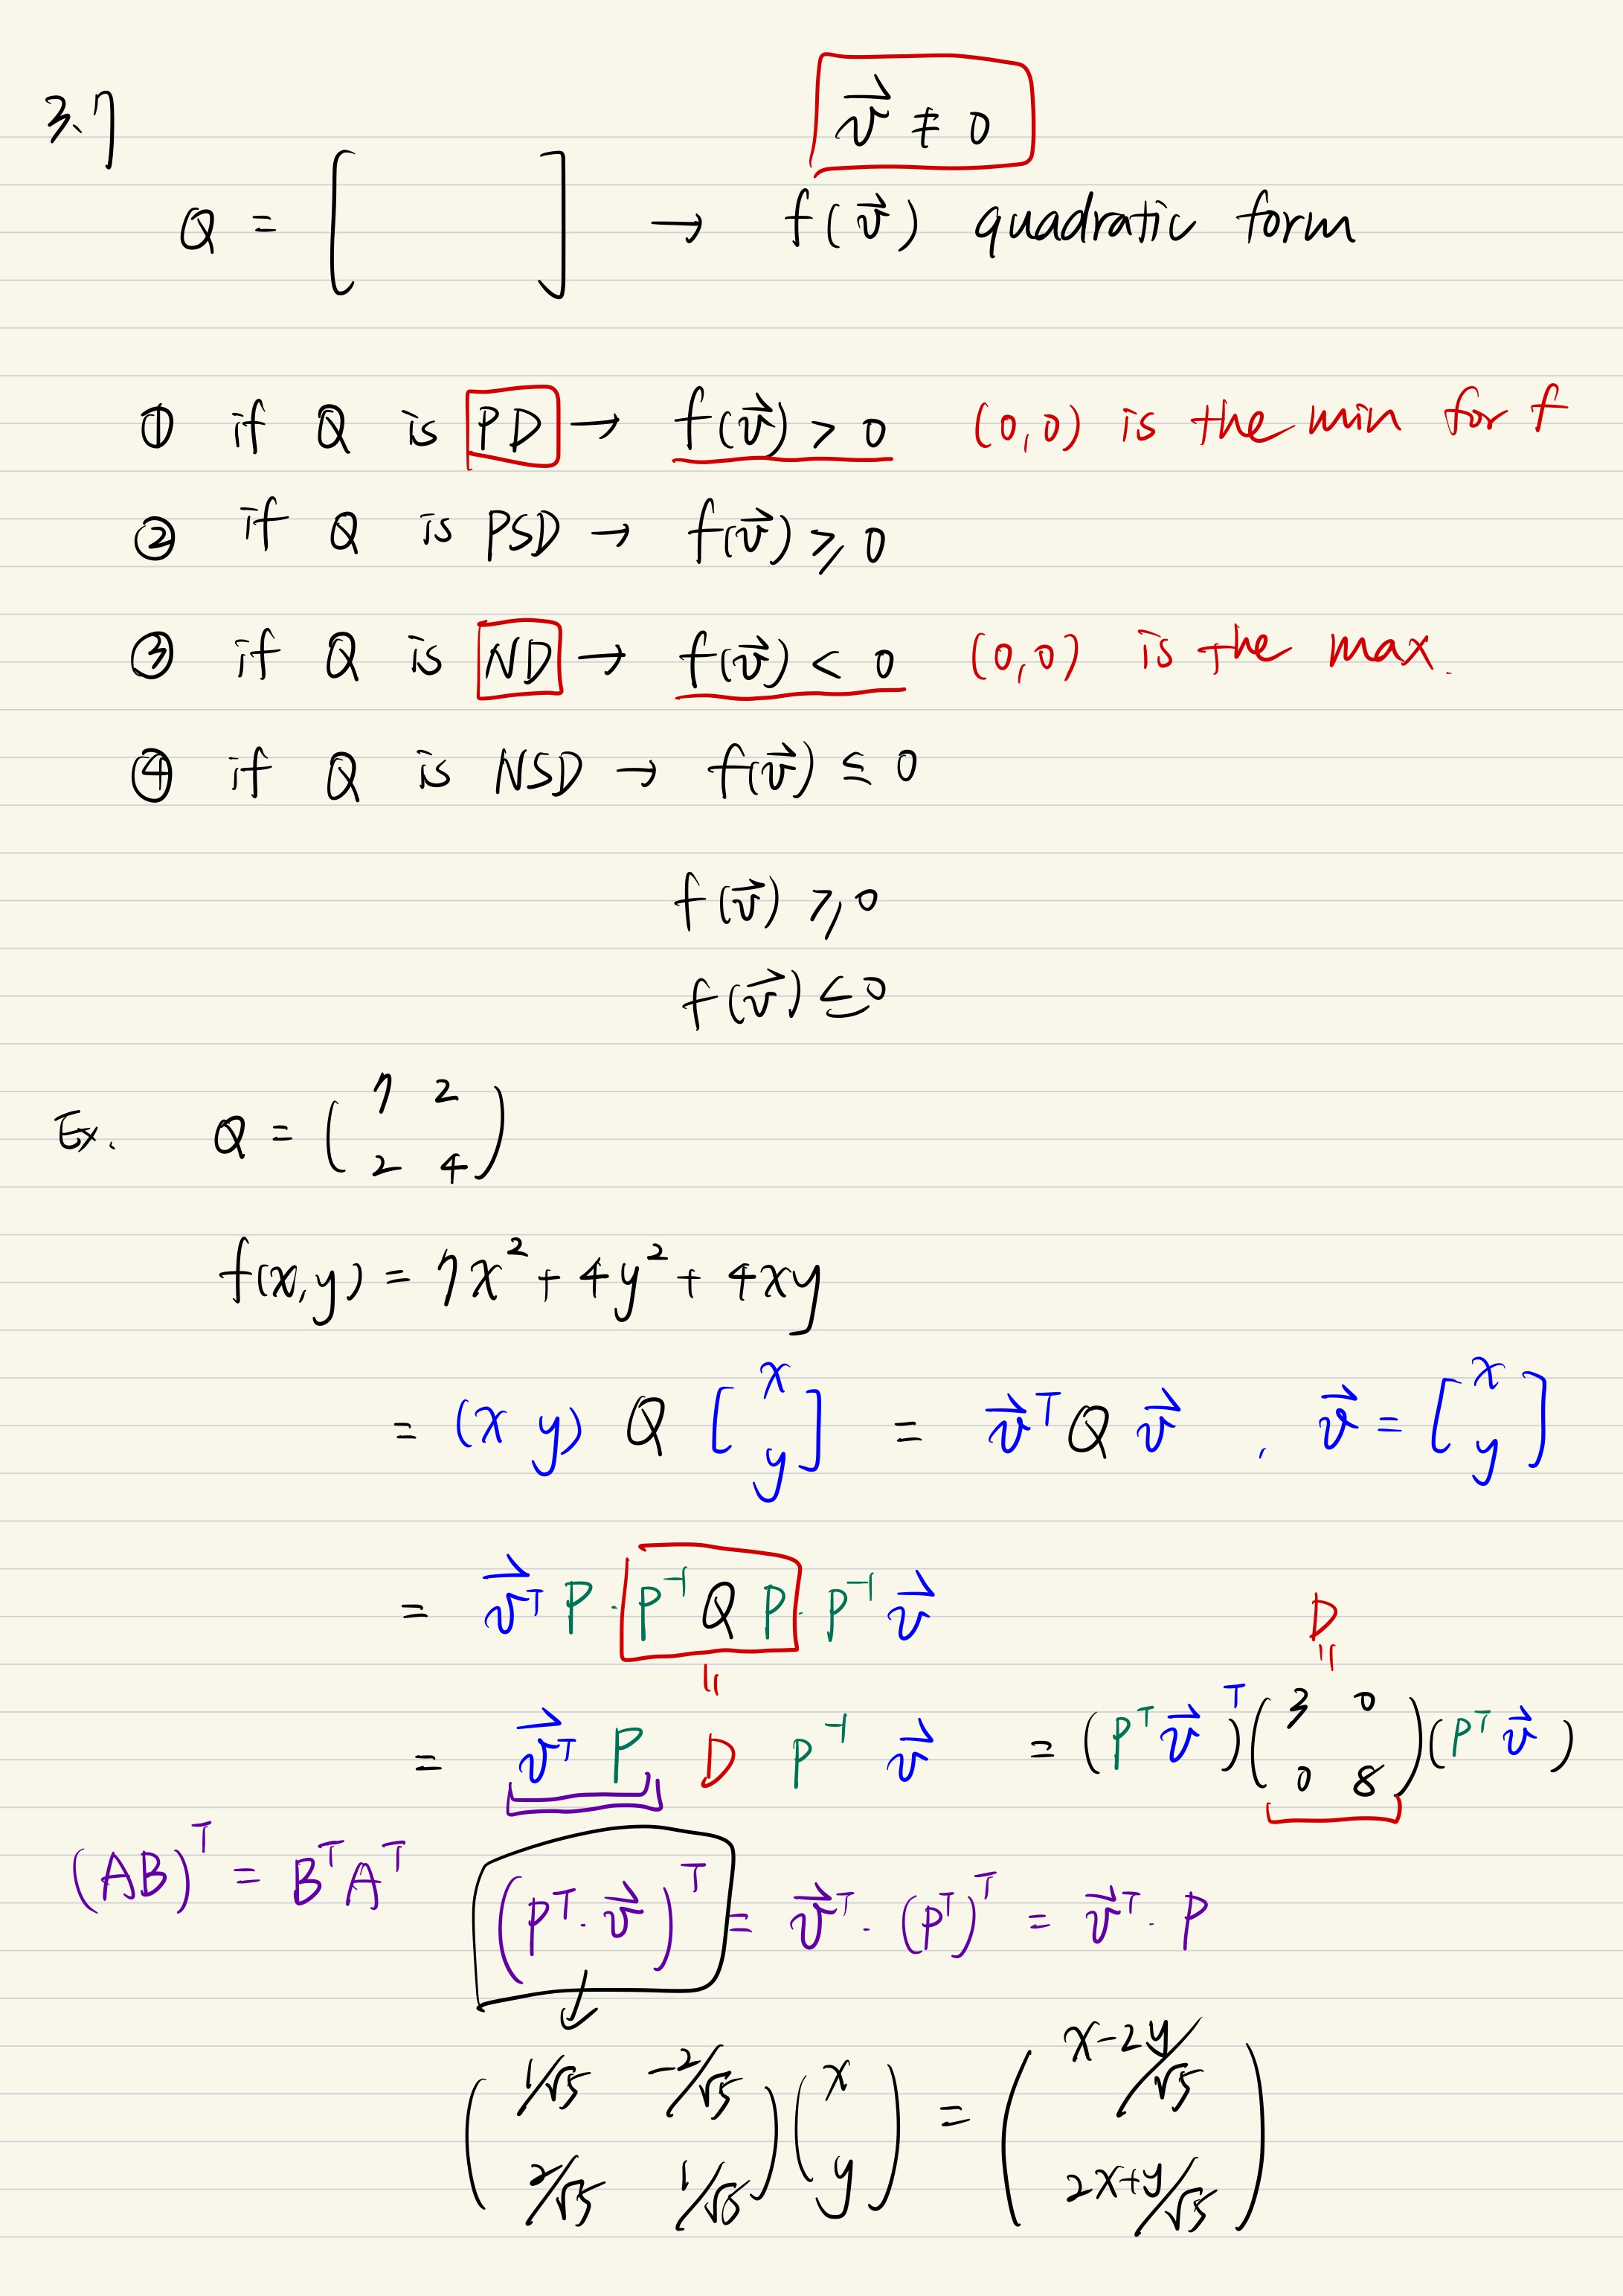 3.7
v⃗ ≠ 0
Q = [ ] → f(v⃗) quadratic form
① if Q is PD → f(v⃗) > 0 (0,0) is the min for f
② if Q is PSD → f(v⃗) ⩾ 0
③ if Q is ND → f(v⃗) < 0 (0,0) is the max.
④ if Q is NSD → f(v⃗) ≤ 0
f(v⃗) ⩾ 0
f(v⃗) ≤ 0
Ex. Q = ( 7 2
2 4 )
f(x,y) = 7x² + 4y² + 4xy
= (x y) Q [ x y ] = v⃗ᵀ Q v⃗ , v⃗ = [ x y ]
= v⃗ᵀ P · P⁻¹ Q P · P⁻¹ v⃗
D
= v⃗ᵀ P D P⁻¹ v⃗ = (Pᵀ v⃗)ᵀ ( 3 0
0 8 ) (Pᵀ v⃗)
(AB)ᵀ = Bᵀ Aᵀ
(Pᵀ · v⃗)ᵀ = v⃗ᵀ · (Pᵀ)ᵀ = v⃗ᵀ · P
( 1/√5 -2/√5 ) ( x ) = ( x-2y/√5 )
( 2/√5 1/√5 ) ( y ) ( 2x+y/√5 )